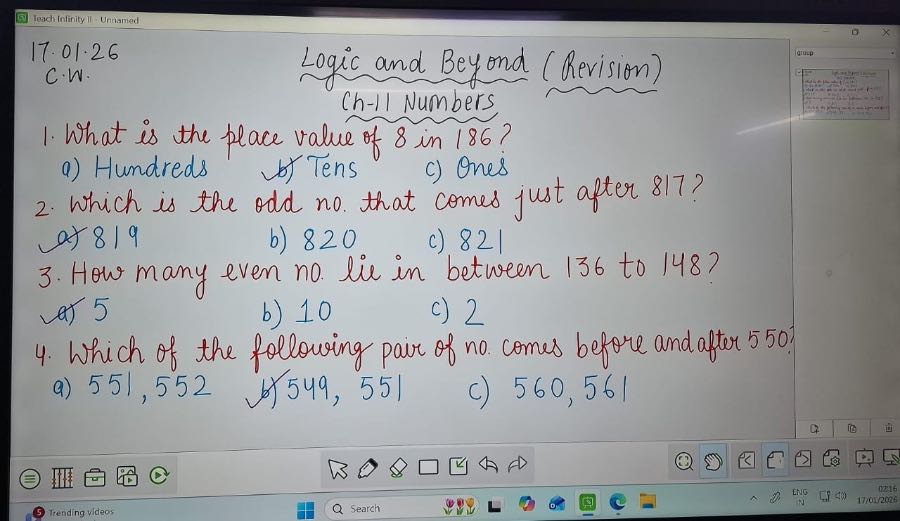 Teach Infinity II - Unnamed
17.01.26
C.W.
Logic and Beyond (Revision)
Ch-11 Numbers
group
1. What is the place value of 8 in 186?
a) Hundreds b) Tens c) Ones
2. Which is the odd no. that comes just after 817?
a) 819 b) 820 c) 821
3. How many even no. lie in between 136 to 148?
a) 5 b) 10 c) 2
4. Which of the following pair of no. comes before and after 550?
a) 551, 552 b) 549, 551 c) 560, 561
5
Trending videos
Search
ENG
IN
02:16
17/01/2026